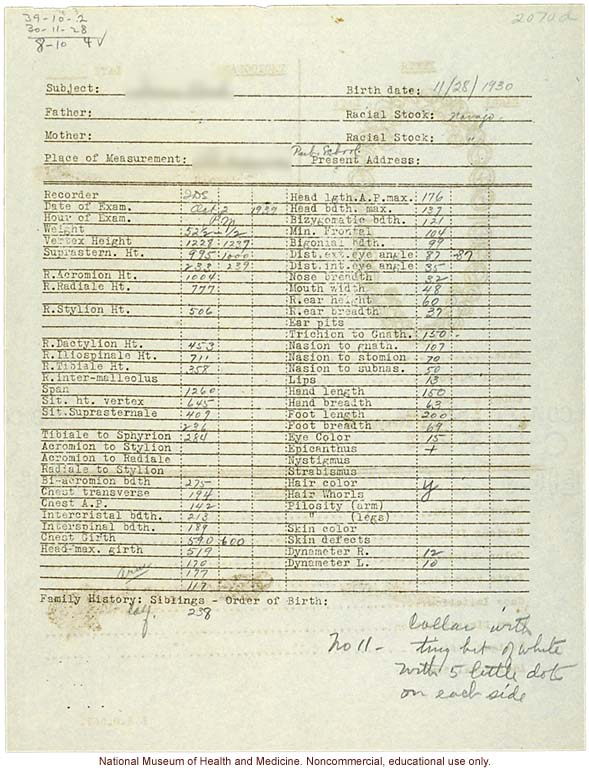 39-10-2
30-11-28
8-10 4 ✓
2070a
Subject: Birth date: 11/28/1930
Father: Racial Stock: Navajo
Mother: Racial Stock: "
Place of Measurement: Pub. School. Present Address:
Recorder Head lgth.A.P.max. 176
Date of Exam. Oct. 2 1939 Head bdth. max. 137
Hour of Exam. Bizygomatic bdth. 121
Weight 52 1/2 Min. Frontal 104
Vertex Height 1228 1237 Bigonial bdth. 99
Suprastern. Ht. 995 1000 Dist.ext.eye angle 87 87
233 239 Dist.int.eye angle 35
R.Acromion Ht. 1004 Nose breadth 32
R.Radiale Ht. 777 Mouth width 48
R.ear height 60
R.Stylion Ht. 506 R.ear breadth 37
Ear pits
Trichion to Gnath. 150
R.Dactylion Ht. 453 Nasion to gnath. 107
R.Iliospinale Ht. 711 Nasion to stomion 70
R.Tibiale Ht. 358 Nasion to subnas. 50
R.inter-malleolus Lips 13
Span 1260 Hand length 150
Sit. ht. vertex 645 Hand breadth 63
Sit.Suprasternale 409 Foot length 200
236 Foot breadth 69
Tibiale to Sphyrion 284 Eye Color 15
Acromion to Stylion Epicanthus +
Acromion to Radiale Nystigmus
Radiale to Stylion Strabismus
Bi-acromion bdth 275 Hair color y
Chest transverse 194 Hair Whorls
Chest A.P. 142 Pilosity (arm)
Intercristal bdth. 213 " (legs)
Interspinal bdth. 189 Skin color
Chest Girth 590 600 Skin defects
Head-max. girth 519 Dynameter R. 12
170 Dynameter L. 10
arm 177
117
Family History: Siblings - Order of Birth:
Calf. 238
No 11- Collar with
tiny bit of white
with 5 little dots
on each side
National Museum of Health and Medicine. Noncommercial, educational use only.